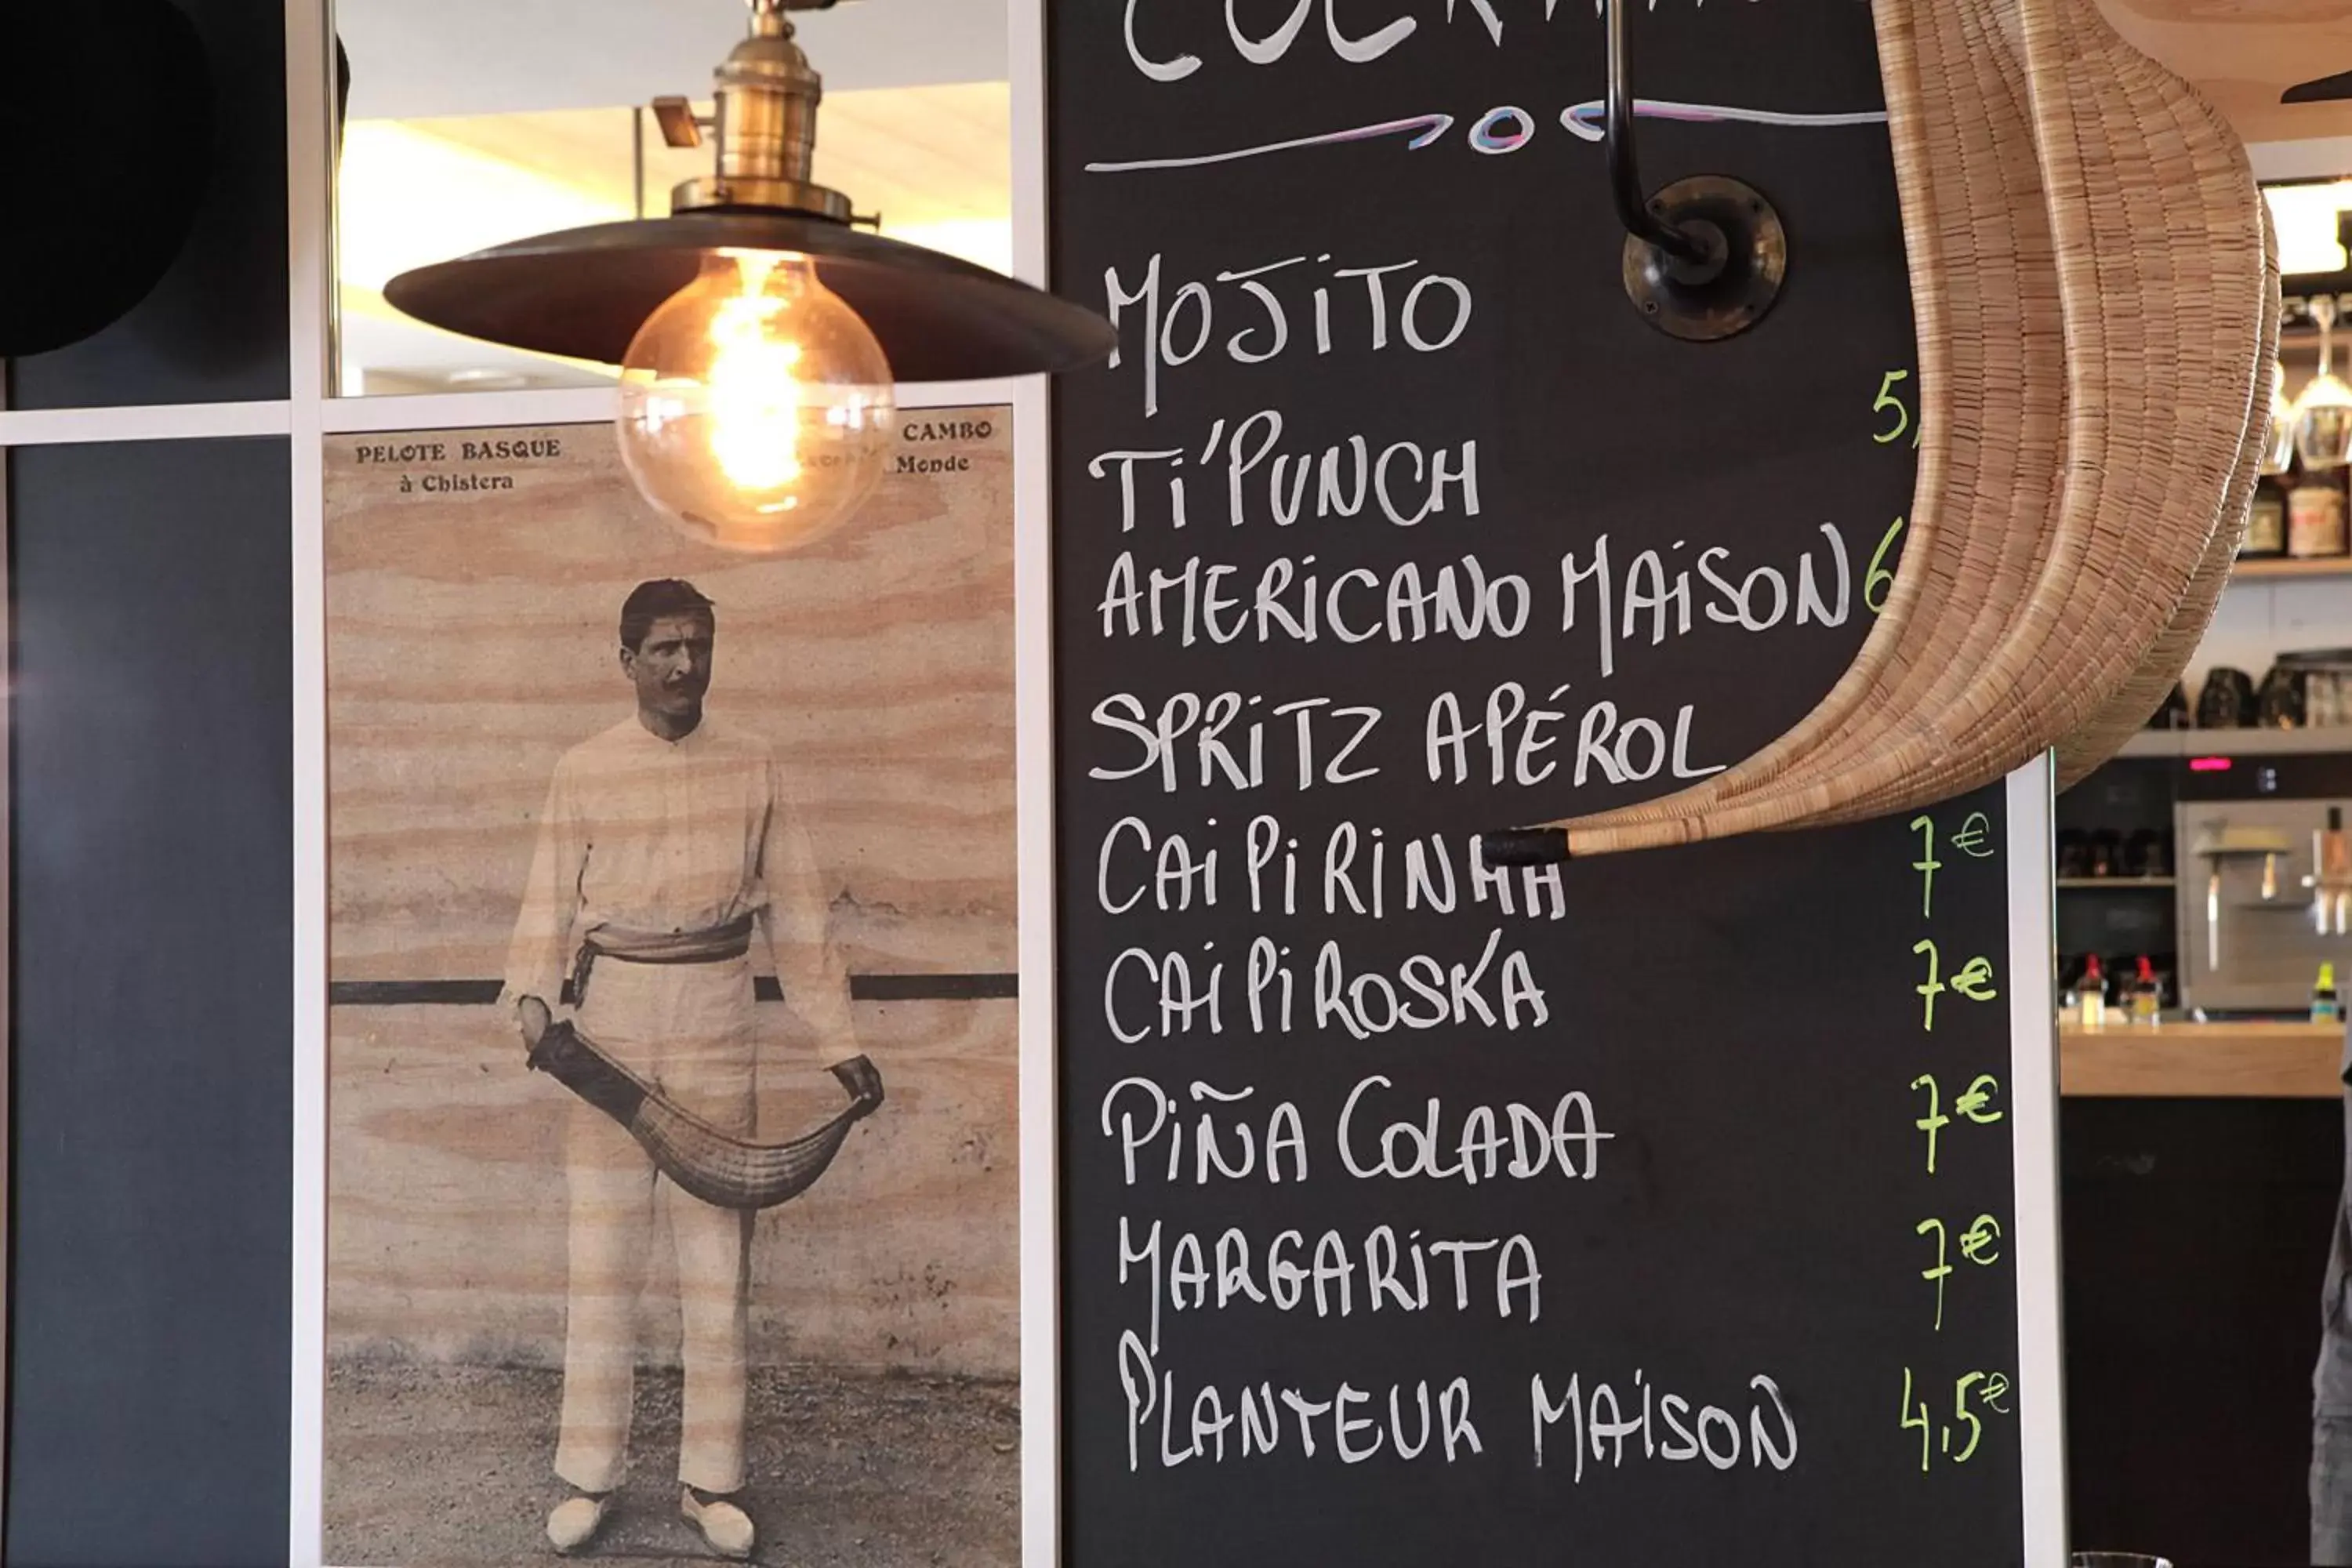 PELOTE BASQUE
à Chistera
CAMBO
Monde
MOJITO
TI'PUNCH 5,
AMERICANO MAISON 6
SPRITZ APÉROL
CAIPIRINHA 7€
CAIPIROSKA 7€
PIÑA COLADA 7€
MARGARITA 7€
PLANTEUR MAISON 4,5€